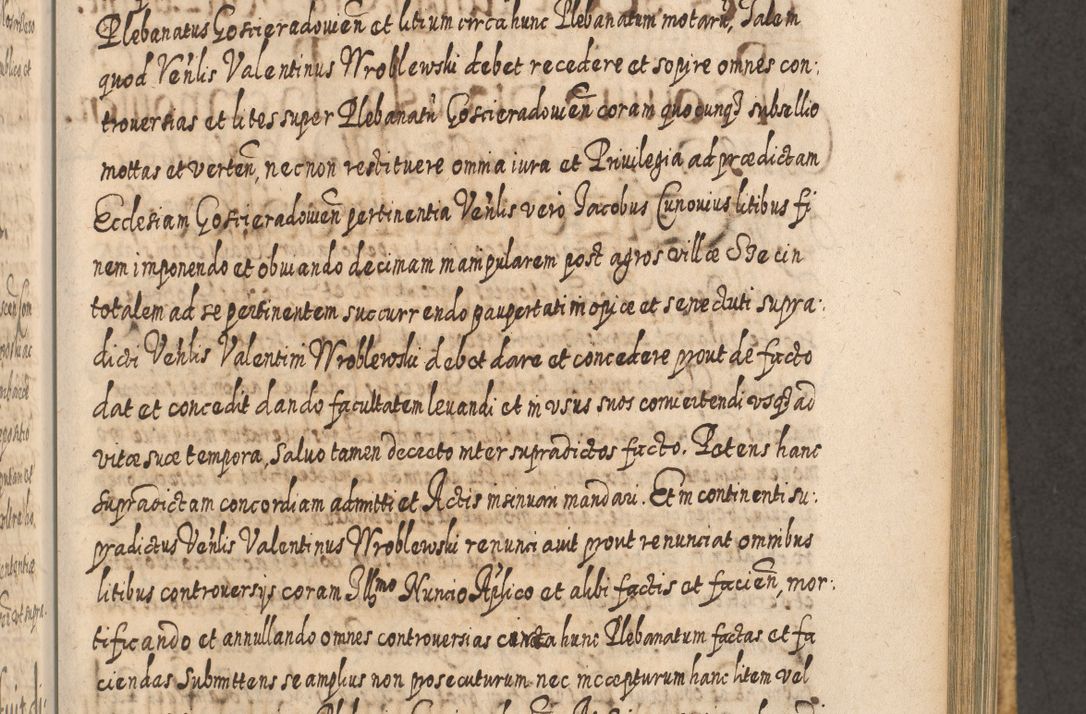 Plebanatus Goscieradowien̄ et litium circa hunc Plebanatum motarū, Talem
quod Ven̄lis Valentinus Wroblewski debet recedere et sopire omnes con:
troversias et lites super Plebanatū Goscieradowien̄ coram quocunqȝ subsellio
mottas et verten̄, necnon restituere omnia iura et Privilegia ad prædictam
Ecclesiam Goscieradowien̄ pertinentia Ven̄lis vero Jacobus Cunovius litibus fi
nem imponendo et obviando decimam manipularem post agros villæ
totalem ad se pertinentem succurrendo paupertati inopiæ et senectuti supra:
dicti Ven̄lis Valentini Wroblewski debet dare et concedere prout de facto
dat et concedit dando facultatem levandi et in usus suos convertendi usqȝ ad
vitæ suæ tempora, Salvo tamen decreto inter supradictos facto. Petens hanc
supradictam concordiam admitti et Actis insinuari mandari. Et in continenti su:
pradictus Ven̄lis Valentinus Wroblewski renunciavit prout renunciat omnibus
litibus controversys coram Illmo Nuncio Aplico et alibi factis et facien̄, mor:
tificando et annullando omnes controversias circa hunc Plebanatum factas et fa
ciendas Submittens se amplius non prosecuturum nec incæpturum hanc litem vel